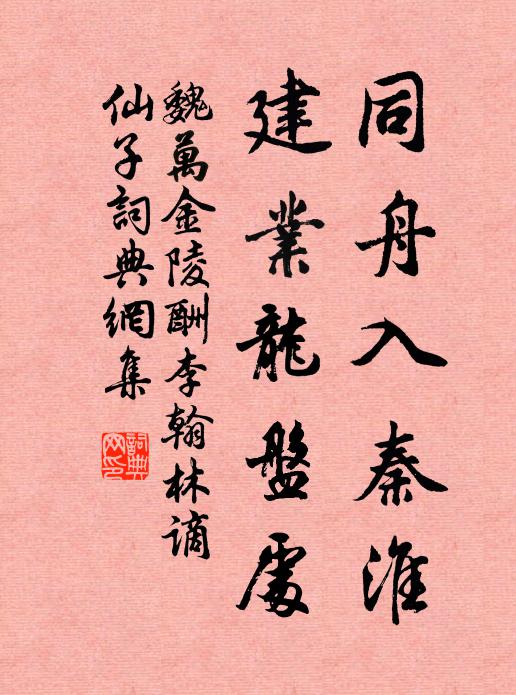 同舟入秦淮
建業龍盤處
魏萬金陵酬李翰林謫
仙子詞典網集
詞典網印